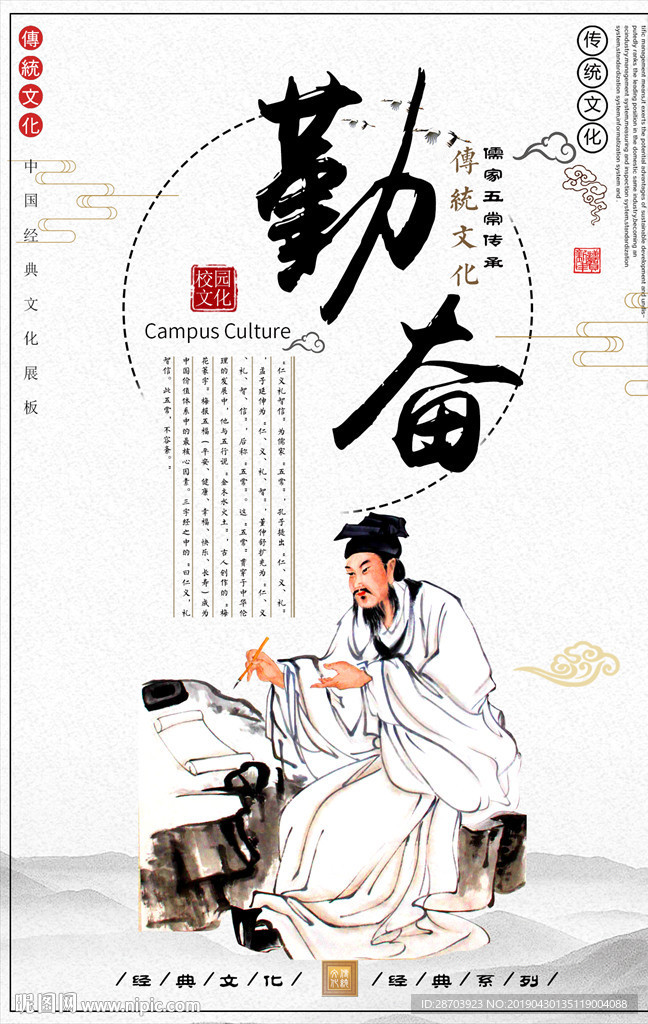 傳統文化
中国经典文化展板
勤奋
儒家五常传承
傳統文化
传统文化
tific management means,it exerts the potential advantages of sustainable development and undis-
putedly ranks the leading position in the domestic same industry,becoming an
acindustry.management system,measuring and inspection system,standardization
system,standardization system,informatization system and .
校园
文化
Campus Culture
“仁义礼智信”为儒家“五常”，孔子提出“仁、义、礼”
，孟子延伸为“仁、义、礼、智”，董仲舒扩充为“仁、义
、礼、智、信”，后称“五常”。这“五常”贯穿于中华伦
理的发展中，他与五行说“金木水火土”，古人创作的“梅
花篆字。梅报五福（平安、健康、幸福、快乐、长寿）成为
中国价值体系中的最核心因素。三字经之中的“曰仁义，礼
智信。此五常，不容紊。”
/经/典/文/化/
/经/典/系/列/
昵图网 www.nipic.com
ID:28703923 NO:20190430135119004088